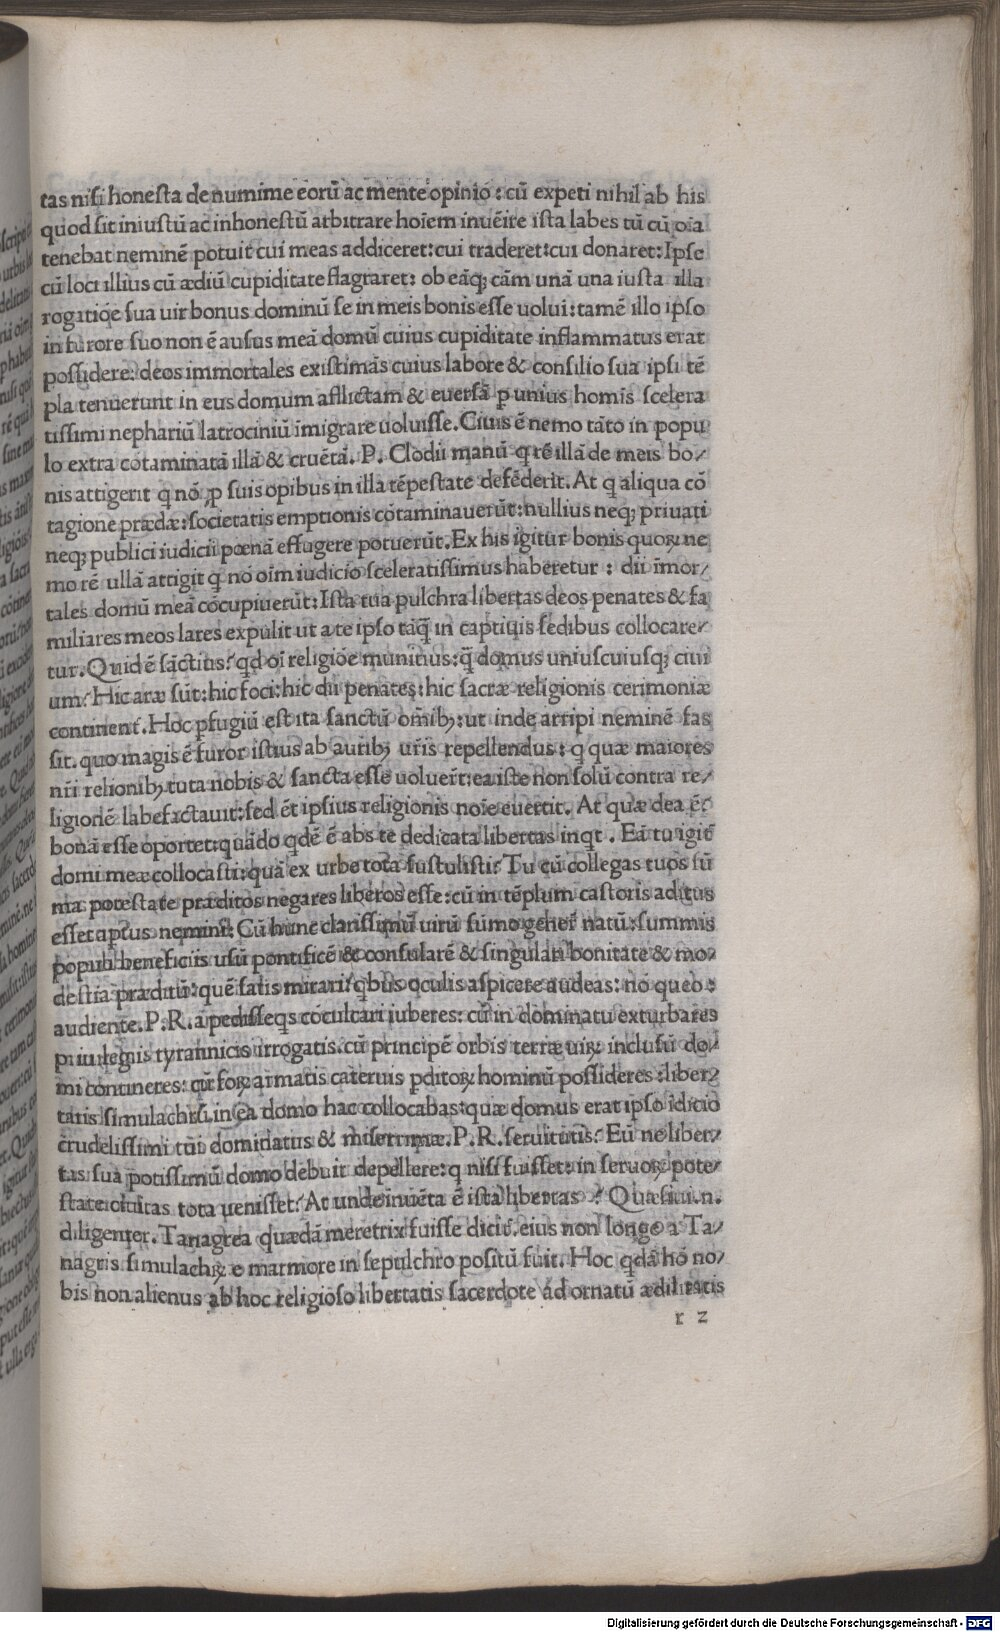 tas nisi honesta de numime eorũ ac mente opinio : cũ expeti nihil ab his
quod sit iniustũ ac inhonestũ arbitrare hoīem inuēire ista labes tũ cũ oīa
tenebat neminē potuit cui meas addiceret: cui traderet: cui donaret: Ipse
cũ loci illius cũ ædiũ cupiditate flagraret: ob eãq; cãm unã una iusta illa
rogatiõe sua uir bonus dominũ se in meis bonis esse uolui: tamē illo ipso
in furore suo non ē ausus meã domũ cuius cupiditate inflammatus erat
possidere: deos immortales existimãs cuius labore & consilio sua ipsi tē
pla tenuerunt in eus domum afflictam & euersã ꝑ unius homis scelera
tissimi nephariũ latrociniũ īmigrare uoluisse. Ciuis ē nemo tãto in popu
lo extra cotaminatã illã & cruētã. P. Clodii manũ q̃ rē illã de meis bo⸗
nis attigerit q̃ nõ ꝓ suis opibus in illa tēpestate defēderit. At q̃ aliqua cõ
tagione prædæ: societatis emptionis cotaminauerũt: nullius neq; priuati
neq; publici iudicii pœnã effugere potuerũt. Ex his igitur bonis quoꝝ ne
mo rē ullã attigit q̃ nõ oīm iudicio sceleratissimus haberetur : dii īmor⸗
tales domũ meã cõcupiuerũt: Ista tua pulchra libertas deos penates & fa
miliares meos lares expulit ut a te ipso tãq̃ in captiuis sedibus collocare⸗
tur. Quid ē sãctius? qd oī religiõe munitius: q̃ domus uniuscuiusq; ciui
um? Hic aræ sũt: hic foci: hic dii penates: hic sacræ religionis cerimoniæ
continent̃. Hoc ꝑfugiũ est ita sanctũ om̃ib;: ut inde arripi neminē fas
sit. quo magis ē furor istius ab aurib; ur̃is repellendus: q̃ quæ maiores
nr̃i relionib; tuta nobis & sancta esse uoluer̃t: ea iste non solũ contra re⸗
ligionē labefactauit: sed ēt ipsius religionis noīe euertit. At quæ dea ē?
bonã esse oportet: quãdo qdē ē abs te dedicata libertas inqt . Eã tu igit̃
domi meæ collocasti: quã ex urbe tota sustulisti? Tu cũ collegas tuos sũ
ma potestate præditos negares liberos esse: cũ in tēplum castoris aditus
esset aptus nemini: Cũ hunc clarissimũ uirũ sũmo gener̃ natũ: summis
populi beneficiis usũ pontificē & consularē & singulari bonitate & mo⸗
destia præditũ: quē satis mirari? qbus oculis aspicere audeas: nõ queo :
audiente. P. R. a pedisseqs cõculcari iuberes: cũ in dominatu exturbares
priuilegiis tyrannicis irrogatis. cũ principē orbis terræ uiꝝ inclusũ do⸗
mi contineres: cũ foꝝ armatis cateruis ꝑditoꝝ hominũ possideres : liber⸗
tatis simulachrũ in ea domo hac collocabas: quæ domus erat ipso idicio
crudelissimi tui dominatus & miserrimæ. P. R. seruitutis. Eũ ne liber⸗
tas sua potissimũ domo debuit depellere: q̃ nisi fuisset: in seruoꝝ pote⸗
state ciuitas tota uenisset? At unde inuēta ē ista libertas ? Quæsiui. n.
diligenter. Tanagrea quædã meretrix fuisse dicit̃. eius non longe a Ta⸗
nagris simulachꝝ e marmore in sepulchro positũ fuit. Hoc qdã hõ no⸗
bis non alienus ab hoc religioso libertatis sacerdote ad ornatũ ædilitatis
r 2
Digitalisierung gefördert durch die Deutsche Forschungsgemeinschaft - DFG